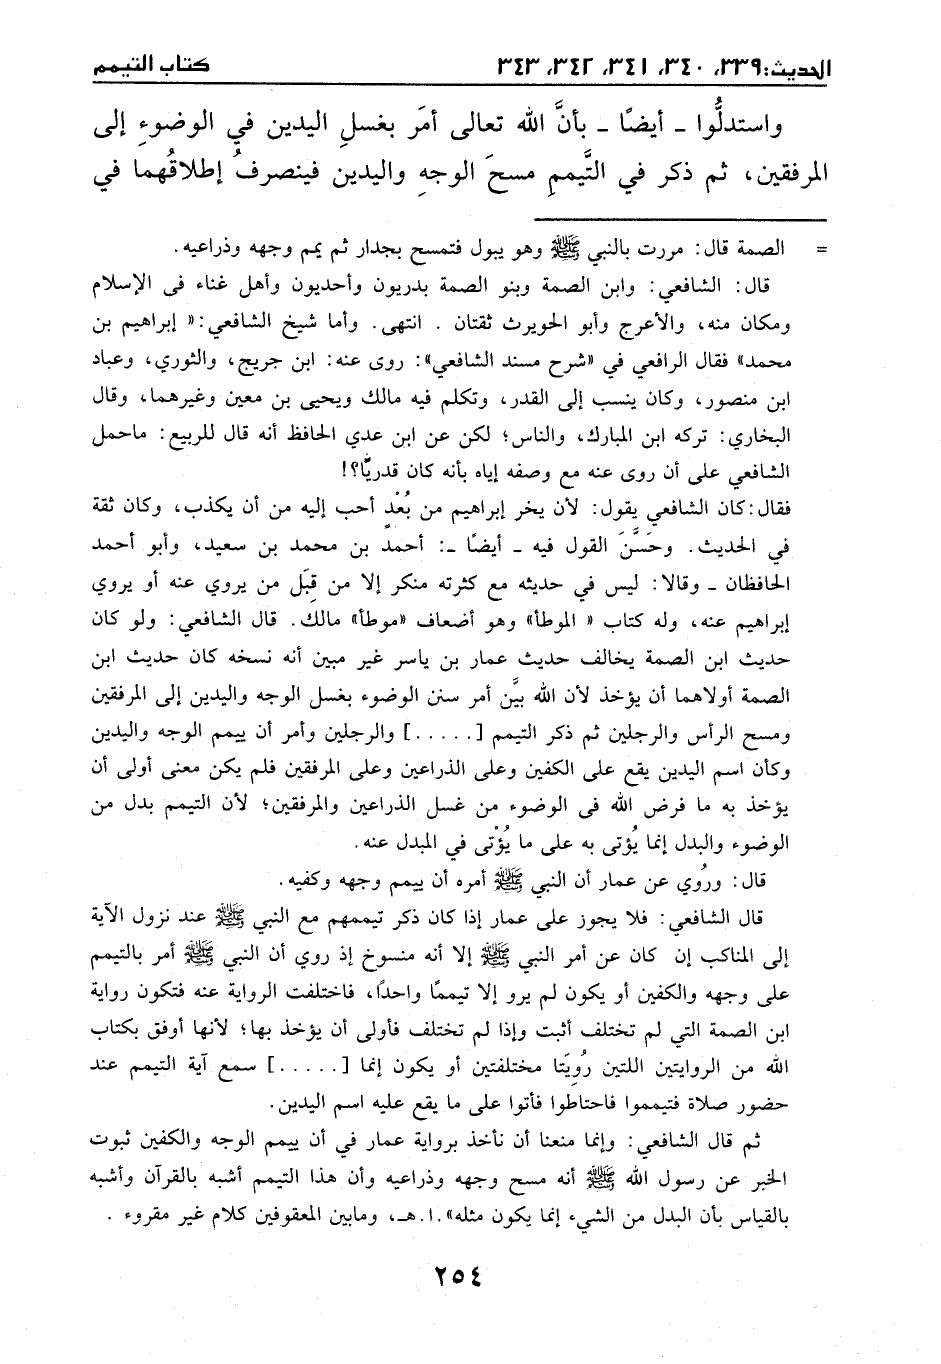 الحديث: ٣٣٩، ٣٤٠، ٣٤١، ٣٤٢، ٣٤٣ كتاب التيمم
واستدلُّوا ـ أيضًا ـ بأنَّ الله تعالى أمَر بغسلِ اليدين في الوضوءِ إلى
المرفقين، ثم ذكر في التَّيممِ مسحَ الوجهِ واليدين فينصرفُ إطلاقُهما في
= الصمة قال: مررت بالنبي ﷺ وهو يبول فتمسح بجدار ثم يمم وجهه وذراعيه.
قال: الشافعي: وابن الصمة وبنو الصمة بدريون وأحديون وأهل غناء فى الإسلام
ومكان منه، والأعرج وأبو الحويرث ثقتان . انتهى. وأما شيخ الشافعي:« إبراهيم بن
محمد» فقال الرافعي في «شرح مسند الشافعي»: روى عنه: ابن جريج، والثوري، وعباد
ابن منصور، وكان ينسب إلى القدر، وتكلم فيه مالك ويحيى بن معين وغيرهما، وقال
البخاري: تركه ابن المبارك، والناس؛ لكن عن ابن عدي الحافظ أنه قال للربيع: ماحمل
الشافعي على أن روى عنه مع وصفه إياه بأنه كان قدريًّا؟!
فقال:كان الشافعي يقول: لأن يخر إبراهيم من بُعْدٍ أحب إليه من أن يكذب، وكان ثقة
في الحديث. وحَسَّنَ القول فيه ـ أيضًا ـ: أحمد بن محمد بن سعيد، وأبو أحمد
الحافظان ـ وقالا: ليس في حديثه مع كثرته منكر إلا من قِبَل من يروي عنه أو يروي
إبراهيم عنه، وله كتاب « الموطأ» وهو أضعاف «موطأ» مالك. قال الشافعي: ولو كان
حديث ابن الصمة يخالف حديث عمار بن ياسر غير مبين أنه نسخه كان حديث ابن
الصمة أولاهما أن يؤخذ لأن الله بيَّن أمر سنن الوضوء بغسل الوجه واليدين إلى المرفقين
ومسح الرأس والرجلين ثم ذكر التيمم [.....] والرجلين وأمر أن ييمم الوجه واليدين
وكأن اسم اليدين يقع على الكفين وعلى الذراعين وعلى المرفقين فلم يكن معنى أولى أن
يؤخذ به ما فرض الله فى الوضوء من غسل الذراعين والمرفقين؛ لأن التيمم بدل من
الوضوء والبدل إنما يُؤتى به على ما يُؤْتى في المبدل عنه.
قال: ورُوي عن عمار أن النبي ﷺ أمره أن ييمم وجهه وكفيه.
قال الشافعي: فلا يجوز على عمار إذا كان ذكر تيممهم مع النبي ﷺ عند نزول الآية
إلى المناكب إن كان عن أمر النبي ﷺ إلا أنه منسوخ إذ روي أن النبي ﷺ أمر بالتيمم
على وجهه والكفين أو يكون لم يرو إلا تيممًا واحدًا، فاختلفت الرواية عنه فتكون رواية
ابن الصمة التي لم تختلف أثبت وإذا لم تختلف فأولى أن يؤخذ بها؛ لأنها أوفق بكتاب
الله من الروايتين اللتين رُويَتا مختلفتين أو يكون إنما [.....] سمع آية التيمم عند
حضور صلاة فتيمموا فاحتاطوا فأتوا على ما يقع عليه اسم اليدين.
ثم قال الشافعي: وإنما منعنا أن نأخذ برواية عمار في أن ييمم الوجه والكفين ثبوت
الخبر عن رسول الله ﷺ أنه مسح وجهه وذراعيه وأن هذا التيمم أشبه بالقرآن وأشبه
بالقياس بأن البدل من الشيء إنما يكون مثله».ا.هـ، ومابين المعقوفين كلام غير مقروء .
٢٥٤